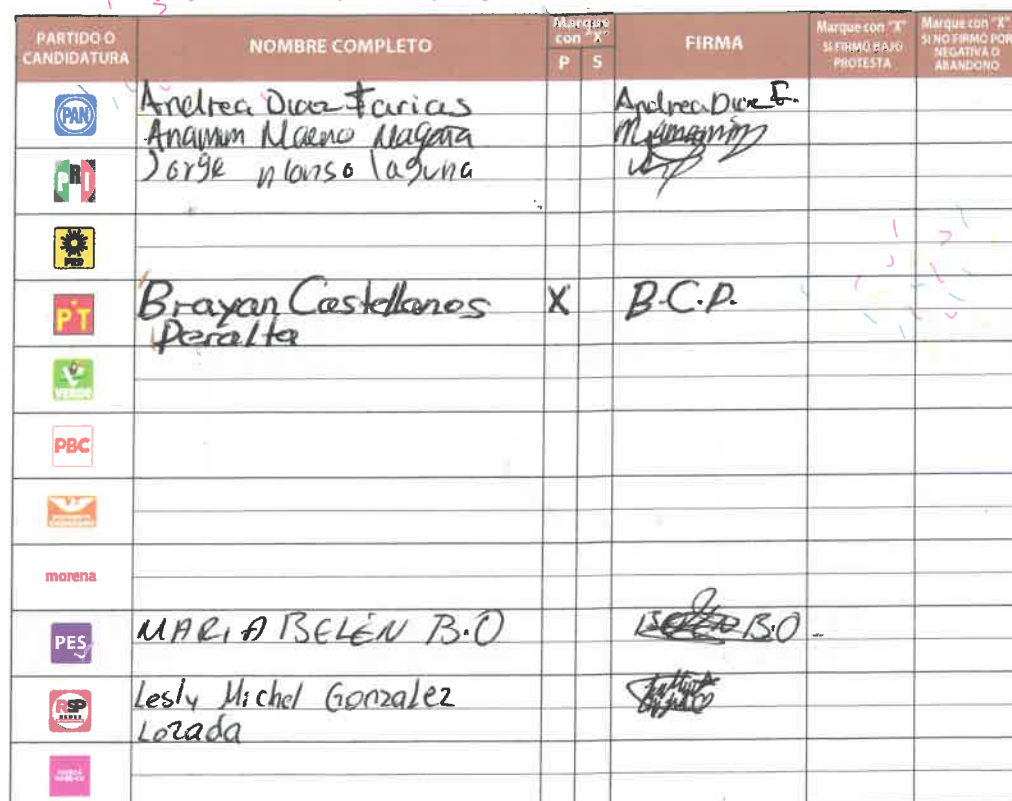 PARTIDO O CANDIDATURA
NOMBRE COMPLETO
Marque con "X"
P S
FIRMA
Marque con "X" SI FIRMÓ BAJO PROTESTA
Marque con "X" SI NO FIRMÓ POR NEGATIVA O ABANDONO
PAN Andrea Diaz Farias Andrea Diaz F.
PRI Jorge Alonso laguna
PRD
PT Brayan Castellanos X B.C.P.
Peralta
VERDE
PBC
morena
PES MARIA BELÉN B.O B.O
RSP Lesly Michel Gonzalez
Lozada